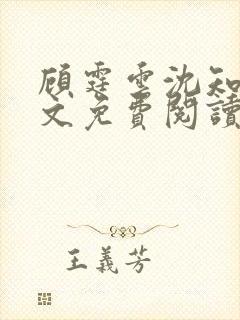 顧霆雲沈知
文免費閱讀
王義芳